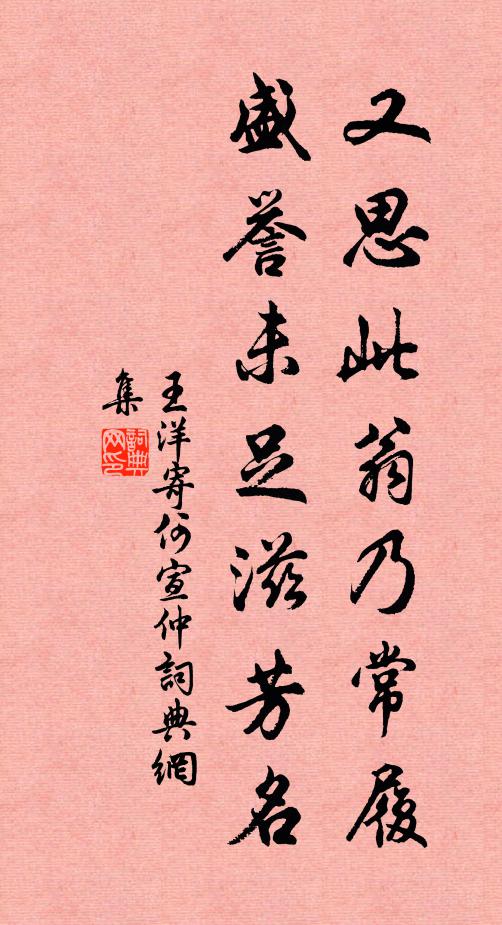 又思此翁乃常履
盛誉未足滋芳名
王洋寄何宣仲詞典網
集
詞典网印